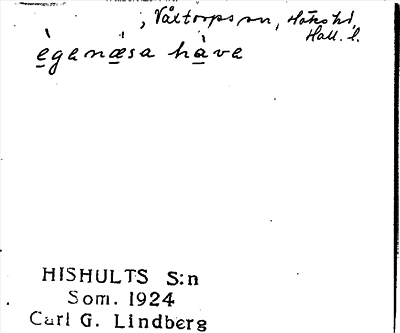 ; Våxtorps sn, Höks hd,
Hall. l.
ègenæ̀sa hàve
HISHULTS S:n
Som. 1924
Carl G. Lindberg